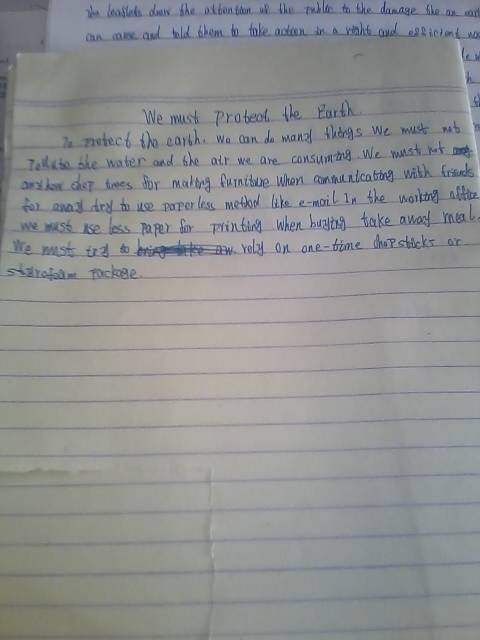 the leaflets draw the attention of the public to the damage the an
can cause and told them to take action in a right and efficient
We must Protect the Earth
To protect the earth. We can do many things We must not
Pollute the water and the air we are consuming We must not
chop trees for making furniture when communicating with friends
for away try to use paperless method like e-mail In the working office
we must use less paper for printing when buying take away meal.
We must try to rely on one-time chopsticks or
package.